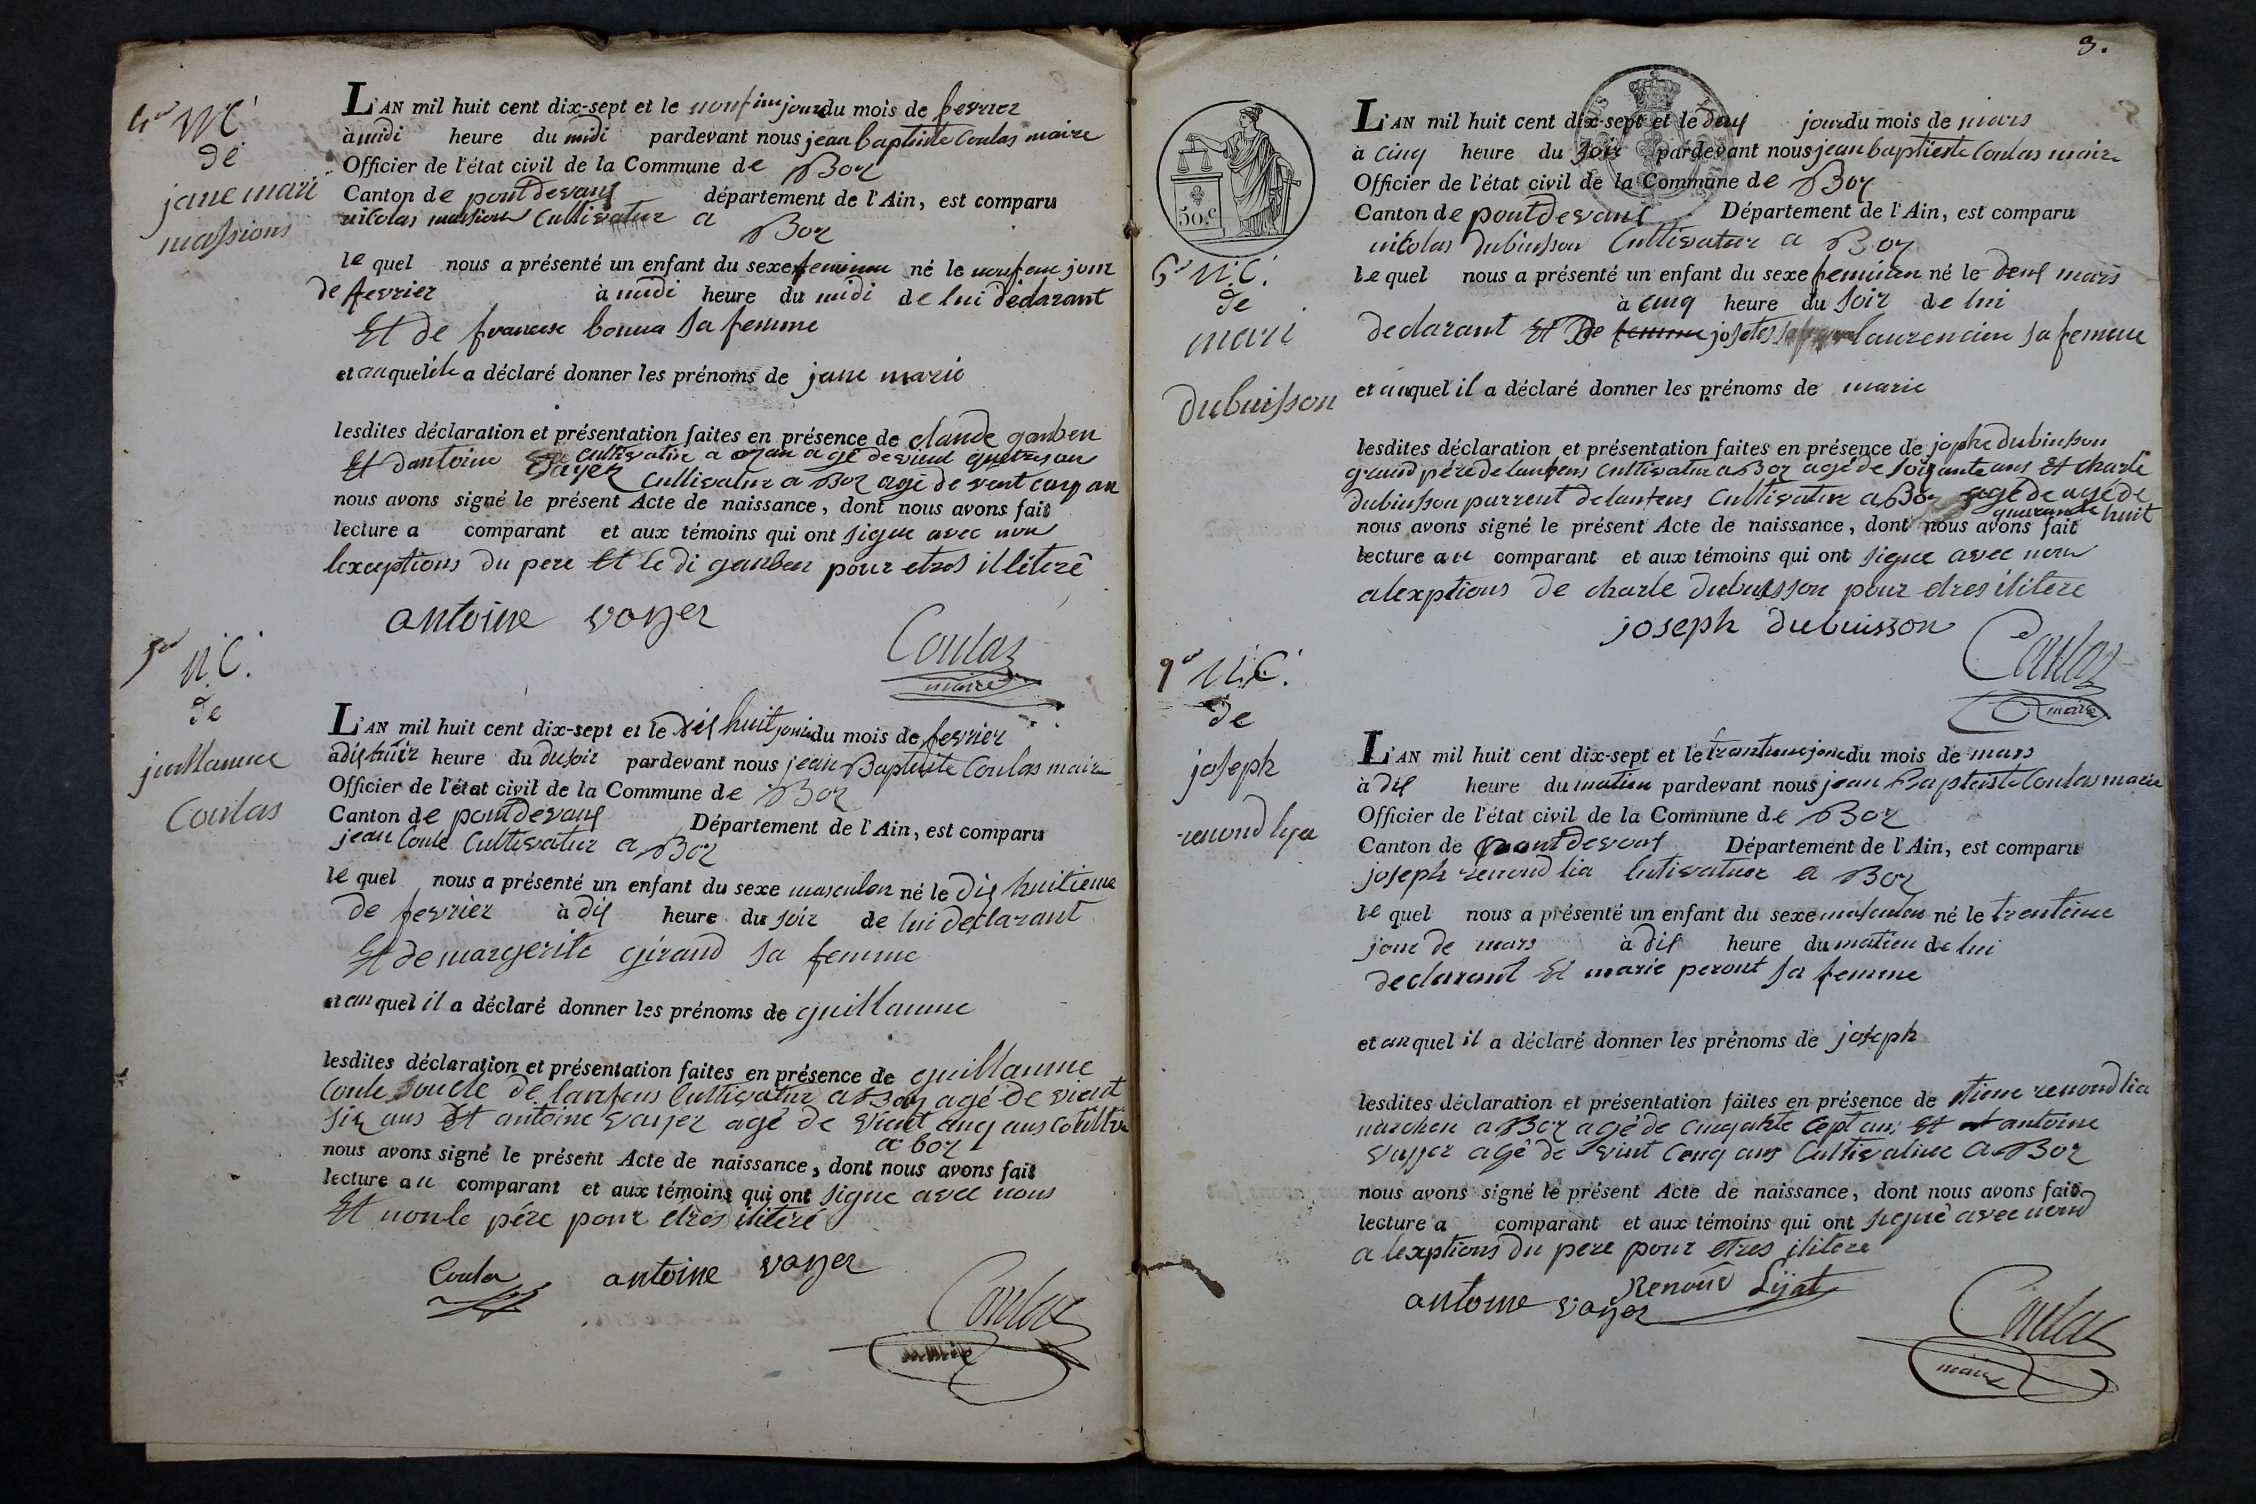 4er N.C.
de
jane mari
massions
L'AN mil huit cent dix-sept et le neufime jour du mois de fevrier
à midi heure du midi pardevant nous jean baptiste Coulas maire
Officier de l'état civil de la Commune de Boz
Canton de pontdevaux département de l'Ain, est comparu
nicolas massions Cultivatur a Boz
le quel nous a présenté un enfant du sexe feminin né le neufeme jour
de fevrier à midi heure du midi de lui déclarant
Et de francoise bonna sa femme
et auquel ile a déclaré donner les prénoms de jane marie
lesdites déclaration et présentation faites en présence de claude
Et dantoine cultivatur a ozan agé de
vayer Cultivatur a Boz agé de vent cinq an
nous avons signé le présent Acte de naissance, dont nous avons fait
lecture a comparant et aux témoins qui ont signe avec nou
lexceptions du pere Et le di pour etres illiteré
antoine vayer
Coulas
maire
5er N.C.
de
Coulas
L'AN mil huit cent dix-sept et le dix huit jour du mois de fevrier
a dix huir heure du du soir pardevant nous jean Baptiste Coulas maire
Officier de l'état civil de la Commune de Boz
Canton de pontdevaux Département de l'Ain, est comparu
jean Coula Cultivatur a Boz
le quel nous a présenté un enfant du sexe masculen né le dix huitieme
de fevrier à dix heure du soir de lui declarant
Et de margerite giraud sa femme
et au quel il a déclaré donner les prénoms de guillaume
lesdites déclaration et présentation faites en présence de guillaume
Coula loncle de lanfens Cultivatur a Boz agé de vient
six ans Et antoine vayer agé de vient cinq ans
a boz
nous avons signé le présent Acte de naissance, dont nous avons fait
lecture au comparant et aux témoins qui ont signe avec nous
Et nonle pére pour etres iliteré
Coulas antoine vayer
Coulas
maire
3.
50 c.
6er N.C.
de
mari
dubuisson
L'AN mil huit cent dix-sept et le deux jour du mois de mars
à cinq heure du soir pardevant nous jean baptieste Coulas maire
Officier de l'état civil de la Commune de Boz
Canton de pontdevaux Département de l'Ain, est comparu
nicolas dubuisson Cultivatur a Boz
le quel nous a présenté un enfant du sexe feminin né le deux mars
à cinq heure du soir de lui
declarant Et De femme laurencin sa femme
et au quel il a déclaré donner les prénoms de marie
lesdites déclaration et présentation faites en présence de jophe dubuisson
grand pére de lanfens cultivatur a Boz agé de soixante ans Et charle
dubuisson parrent de lanfens Cultivatur a Boz agé de agé de
quarante huit
nous avons signé le présent Acte de naissance, dont nous avons fait
lecture au comparant et aux témoins qui ont signe avec nou
alexptions de charle dubuisson pour etres ilitere
joseph dubuisson
Coulas
maire
7er N.C.
de
joseph
renond lya
L'AN mil huit cent dix-sept et le jour du mois de mars
à dix heure du matien pardevant nous jean Baptiste Coulas marie
Officier de l'état civil de la Commune de Boz
Canton de pontdevaux Département de l'Ain, est comparu
joseph renond lia Cutivatuer a Boz
le quel nous a présenté un enfant du sexe masculen né le trentieme
jour de mars à dix heure du matien de lui
declarant Et marie peront sa femme
et au quel il a déclaré donner les prénoms de joseph
lesdites déclaration et présentation faites en présence de etiene renond lia
a Boz agé de cinqante cept ans Et antoine
vayer agé de vint cenq ans Cultivatuer a Boz
nous avons signé le présent Acte de naissance, dont nous avons fait
lecture a comparant et aux témoins qui ont signé avec nous
a lexptions du pere pour etres ilitere
antoine vayer Renoud Lyat
Coulas
maire